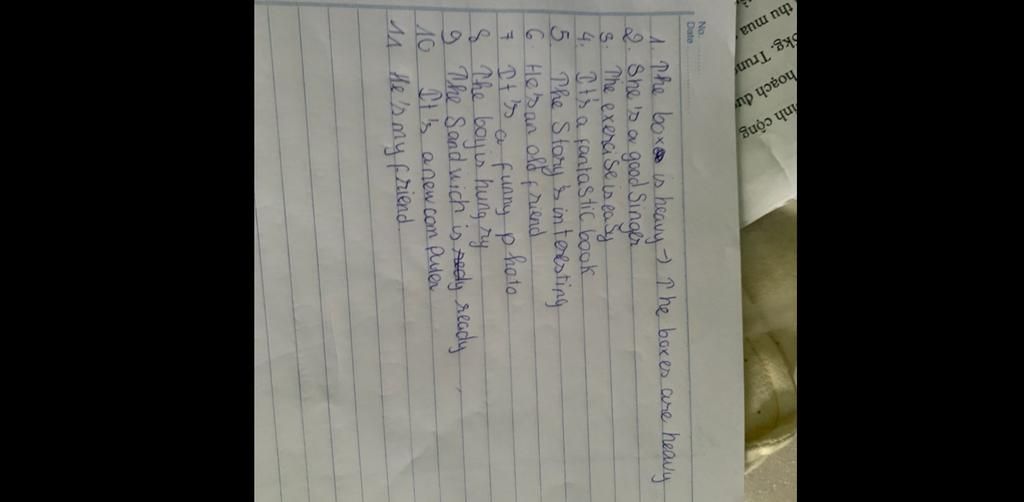 No.
Date
1. The box is heavy → The boxes are heavy
2. She's a good Singer
3. The exercise is easy
4. It's a fantastic book
5. The Story's interesting
6. He's an old friend
7 It's a funny photo
8 The boy is hungry
9 The Sandwich is ready
10 It's a new computer
11 He's my friend.
thu mua
5kg. Trung
hoạch dự
inh cộng